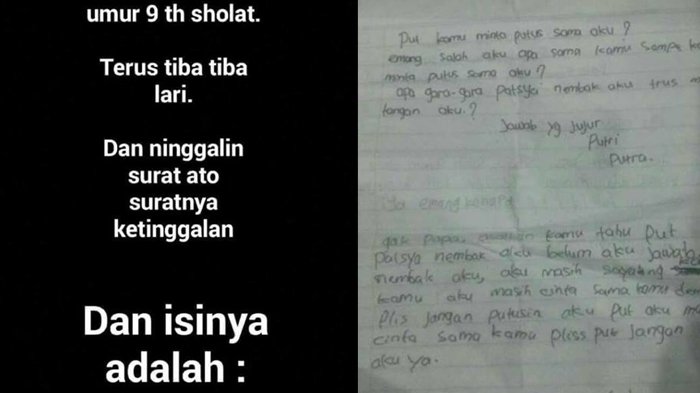 umur 9 th sholat.
Terus tiba tiba
lari.
Dan ninggalin
surat ato
suratnya
ketinggalan
Dan isinya
adalah :
Put kamu minta putus sama aku ?
emang salah aku apa sama kamu sampe
minta putus sama aku ?
apa gara-gara patsya nembak aku trus
tangan aku. ?
Jawab yg jujur
Putri
Putra.
Ya emang kenapa
gak papa kamu tahu put
patsya nembak aku belum aku jawab
nembak aku, aku masih sayang
kamu aku masih cinta sama kamu
plis jangan putusin aku put aku
cinta sama kamu pliss put jangan
aku ya.